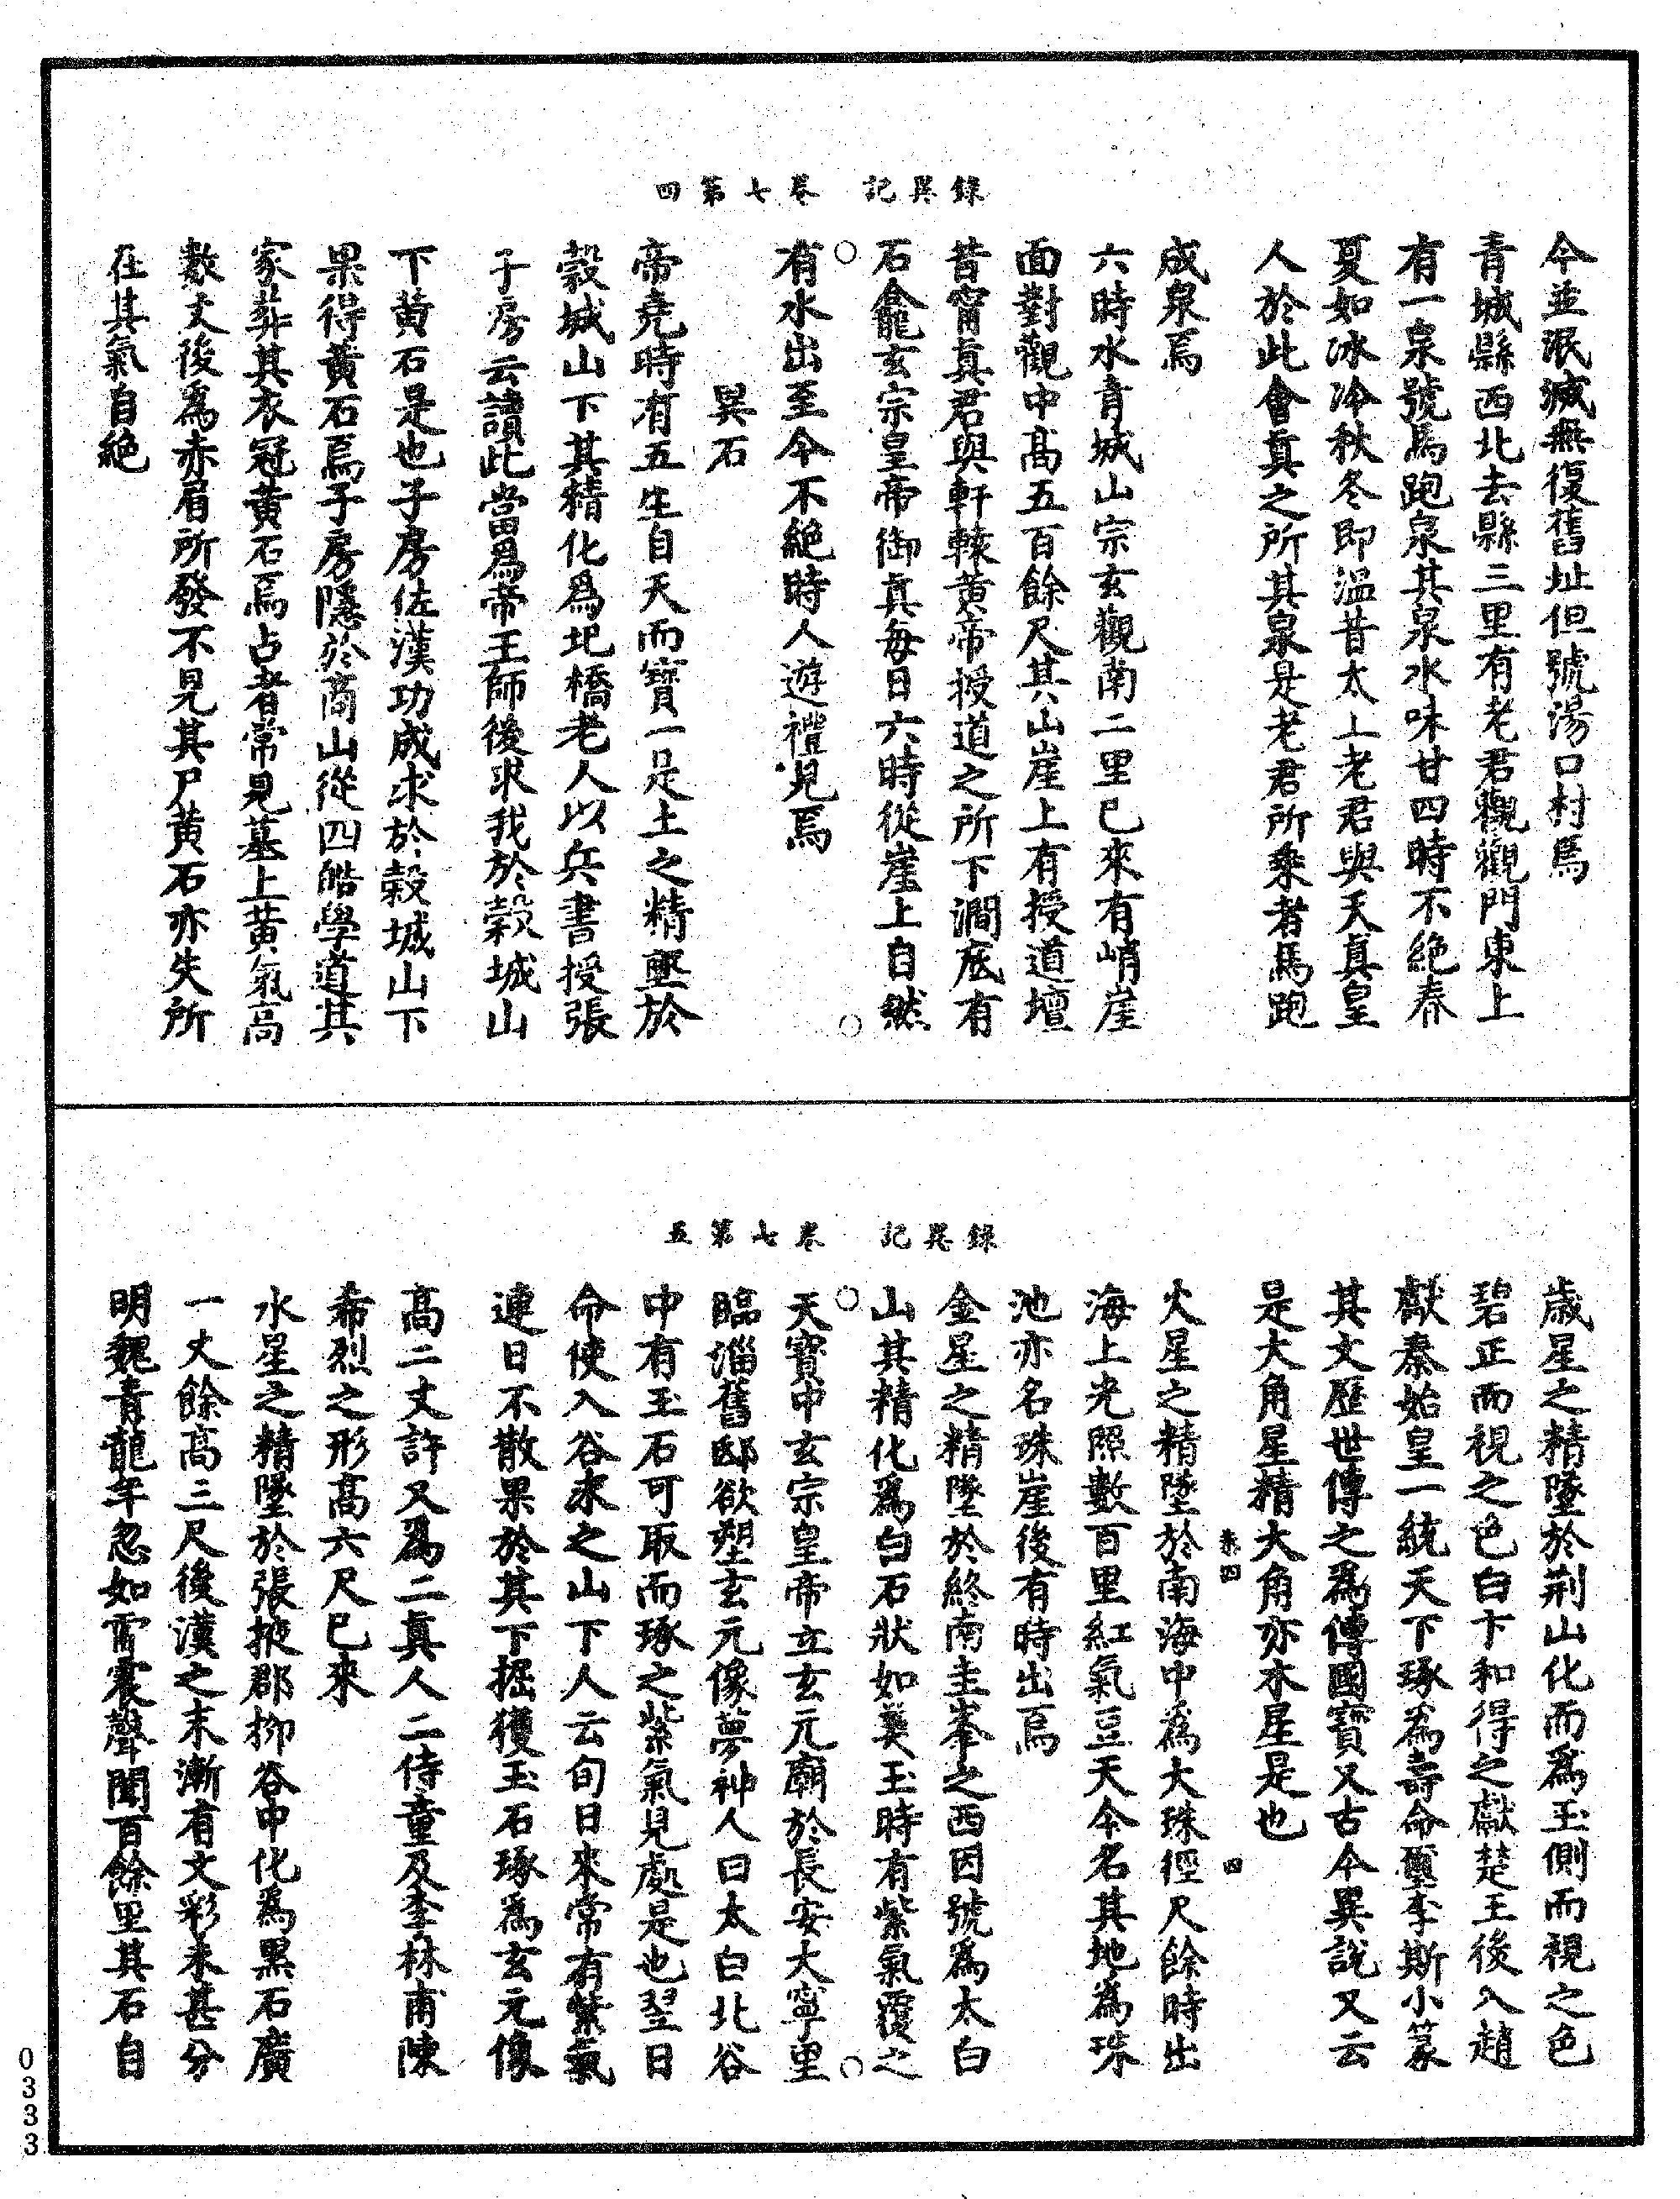 四第七卷　記異錄
今並泯滅無復舊址但號湯口村焉
青城縣西北去縣三里有老君觀觀門東上
有一泉號馬跑泉其泉水味甘四時不絕春
夏如冰冷秋冬即溫昔太上老君與天真皇
人於此會真之所其泉是老君所乘者馬跑
成泉焉
六時水青城山宗玄觀南二里已來有峭崖
面對觀中高五百餘尺其山崖上有授道壇
昔甯真君與軒轅黃帝授道之所下澗底有
石龕玄宗皇帝御真每日六時從崖上自然
有水出至今不絕時人遊禮見焉
異石
帝堯時有五星自天而實一是土之精墜於
穀城山下其精化爲圯橋老人以兵書授張
子房云讀此當爲帝王師後求我於穀城山
下黃石是也子房佐漢功成求於穀城山下
果得黃石焉子房隱於商山從四皓學道其
家葬其衣冠黃石焉占者常見墓上黃氣高
數丈後爲赤眉所發不見其尸黃石亦失所
在其氣自絕
五第七卷　記異錄
歲星之精墜於荊山化而爲玉側而視之色
碧正而視之色白卞和得之獻楚王後入趙
獻秦始皇一統天下琢爲壽命璽李斯小篆
其文歷世傳之爲傳國寶又古今異說又云
是大角星精大角亦木星是也
表四　四
火星之精墜於南海中爲大珠徑尺餘時出
海上光照數百里紅氣亘天今名其地爲珠
池亦名珠崖後有時出焉
金星之精墜於終南圭峯之西因號爲太白
山其精化爲白石狀如美玉時有紫氣覆之
天寶中玄宗皇帝立玄元廟於長安大寧里
臨淄舊邸欲塑玄元像夢神人曰太白北谷
中有玉石可取而琢之紫氣見處是也翌日
命使入谷求之山下人云旬日來常有紫氣
連日不散果於其下掘獲玉石琢爲玄元像
高二丈許又爲二真人二侍童及李林甫陳
希烈之形高六尺已來
水星之精墜於張掖郡柳谷中化爲黑石廣
一丈餘高三尺後漢之末漸有文彩未甚分
明魏青龍年忽如雷震聲聞百餘里其石自
0333